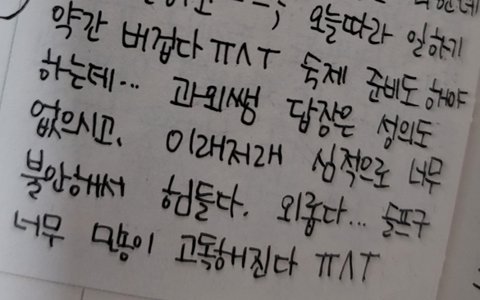 오늘따라 일하기
약간 버겁다 ㅠㅅㅜ 숙제 준비도 해야
하는데... 과외쌤 답장은 성의도
없으시고, 이래저래 심적으로 너무
불안해서 힘들다. 외롭다... 슬프구
너무 많이 고독해진다 ㅠㅅㅜ